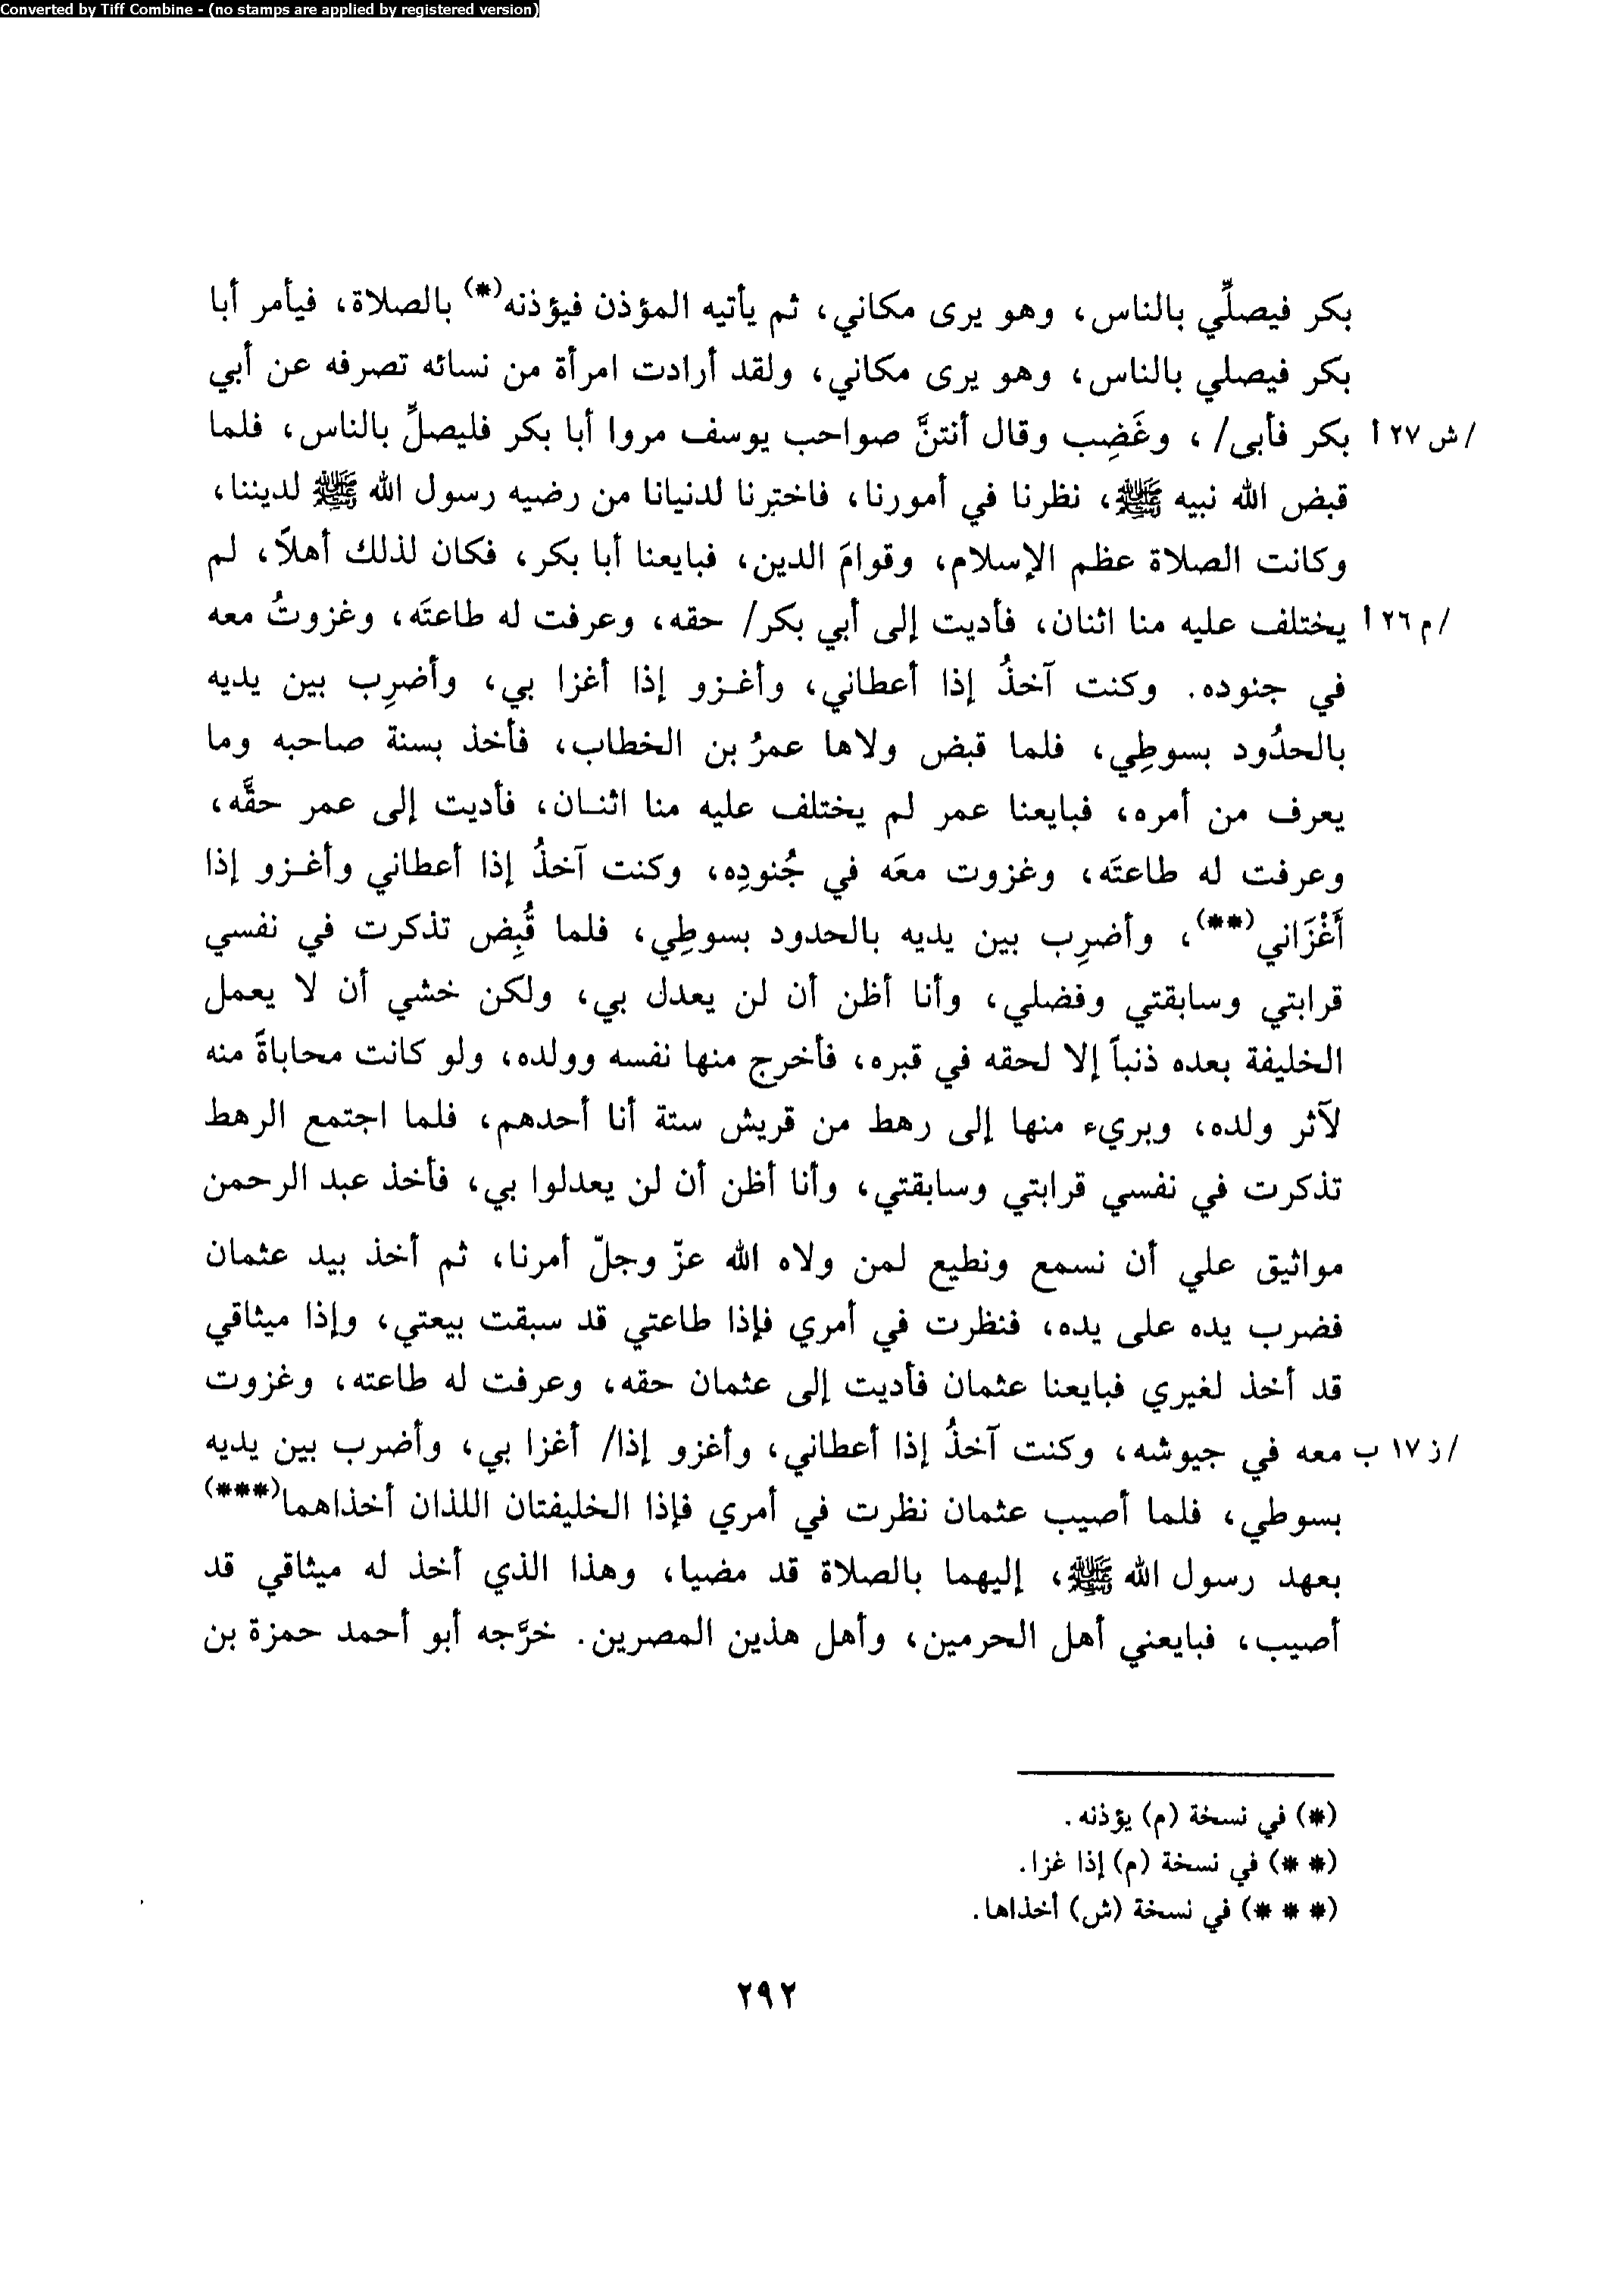 Converted by Tiff Combine - (no stamps are applied by registered version)
بكر فيصلِّي بالناس، وهو يرى مكاني، ثم يأتيه المؤذن فيؤذنه(*) بالصلاة، فيأمر أبا
بكر فيصلي بالناس، وهو يرى مكاني، ولقد أرادت امرأة من نسائه تصرفه عن أبي
/ ش ٢٧ أ بكر فأبى/ ، وغَضِب وقال أنتنَّ صواحب يوسف مروا أبا بكر فليصلِّ بالناس، فلما
قبض الله نبيه ﷺ، نظرنا في أمورنا، فاخترنا لدنيانا من رضيه رسول الله ﷺ لديننا،
وكانت الصلاة عظم الإسلام، وقوامَ الدين، فبايعنا أبا بكر، فكان لذلك أهلاً، لم
/ م ٢٦ أ يختلف عليه منا اثنان، فأديت إلى أبي بكر/ حقه، وعرفت له طاعتَه، وغزوتُ معه
في جنوده. وكنت آخذُ إذا أعطاني، وأغزو إذا أغزا بي، وأضرِب بين يديه
بالحدُود بسوطِي، فلما قبض ولاها عمرُ بن الخطاب، فأخذ بسنة صاحبه وما
يعرف من أمره، فبايعنا عمر لم يختلف عليه منا اثنان، فأديت إلى عمر حقَّه،
وعرفت له طاعتَه، وغزوت معَه في جُنودِه، وكنت آخذُ إذا أعطاني وأغزو إذا
أَغْزَاني(**)، وأضرِب بين يديه بالحدود بسوطِي، فلما قُبِض تذكرت في نفسي
قرابتي وسابقتي وفضلي، وأنا أظن أن لن يعدل بي، ولكن خشي أن لا يعمل
الخليفة بعده ذنباً إلا لحقه في قبره، فأخرج منها نفسه وولده، ولو كانت محاباةً منه
لآثر ولده، وبريء منها إلى رهط من قريش ستة أنا أحدهم، فلما اجتمع الرهط
تذكرت في نفسي قرابتي وسابقتي، وأنا أظن أن لن يعدلوا بي، فأخذ عبد الرحمن
مواثيق علي أن نسمع ونطيع لمن ولاه الله عزّ وجلّ أمرنا، ثم أخذ بيد عثمان
فضرب يده على يده، فنظرت في أمري فإذا طاعتي قد سبقت بيعتي، وإذا ميثاقي
قد أخذ لغيري فبايعنا عثمان فأديت إلى عثمان حقه، وعرفت له طاعته، وغزوت
/ ز ١٧ ب معه في جيوشه، وكنت آخذُ إذا أعطاني، وأغزو إذا/ أغزا بي، وأضرب بين يديه
بسوطي، فلما أصيب عثمان نظرت في أمري فإذا الخليفتان اللذان أخذاهما(***)
بعهد رسول الله ﷺ، إليهما بالصلاة قد مضيا، وهذا الذي أخذ له ميثاقي قد
أصيب، فبايعني أهل الحرمين، وأهل هذين المصرين. خرَّجه أبو أحمد حمزة بن
(*) في نسخة (م) يؤذنه.
(* *) في نسخة (م) إذا غزا.
(* * *) في نسخة (ش) أخذاها.
٢٩٢